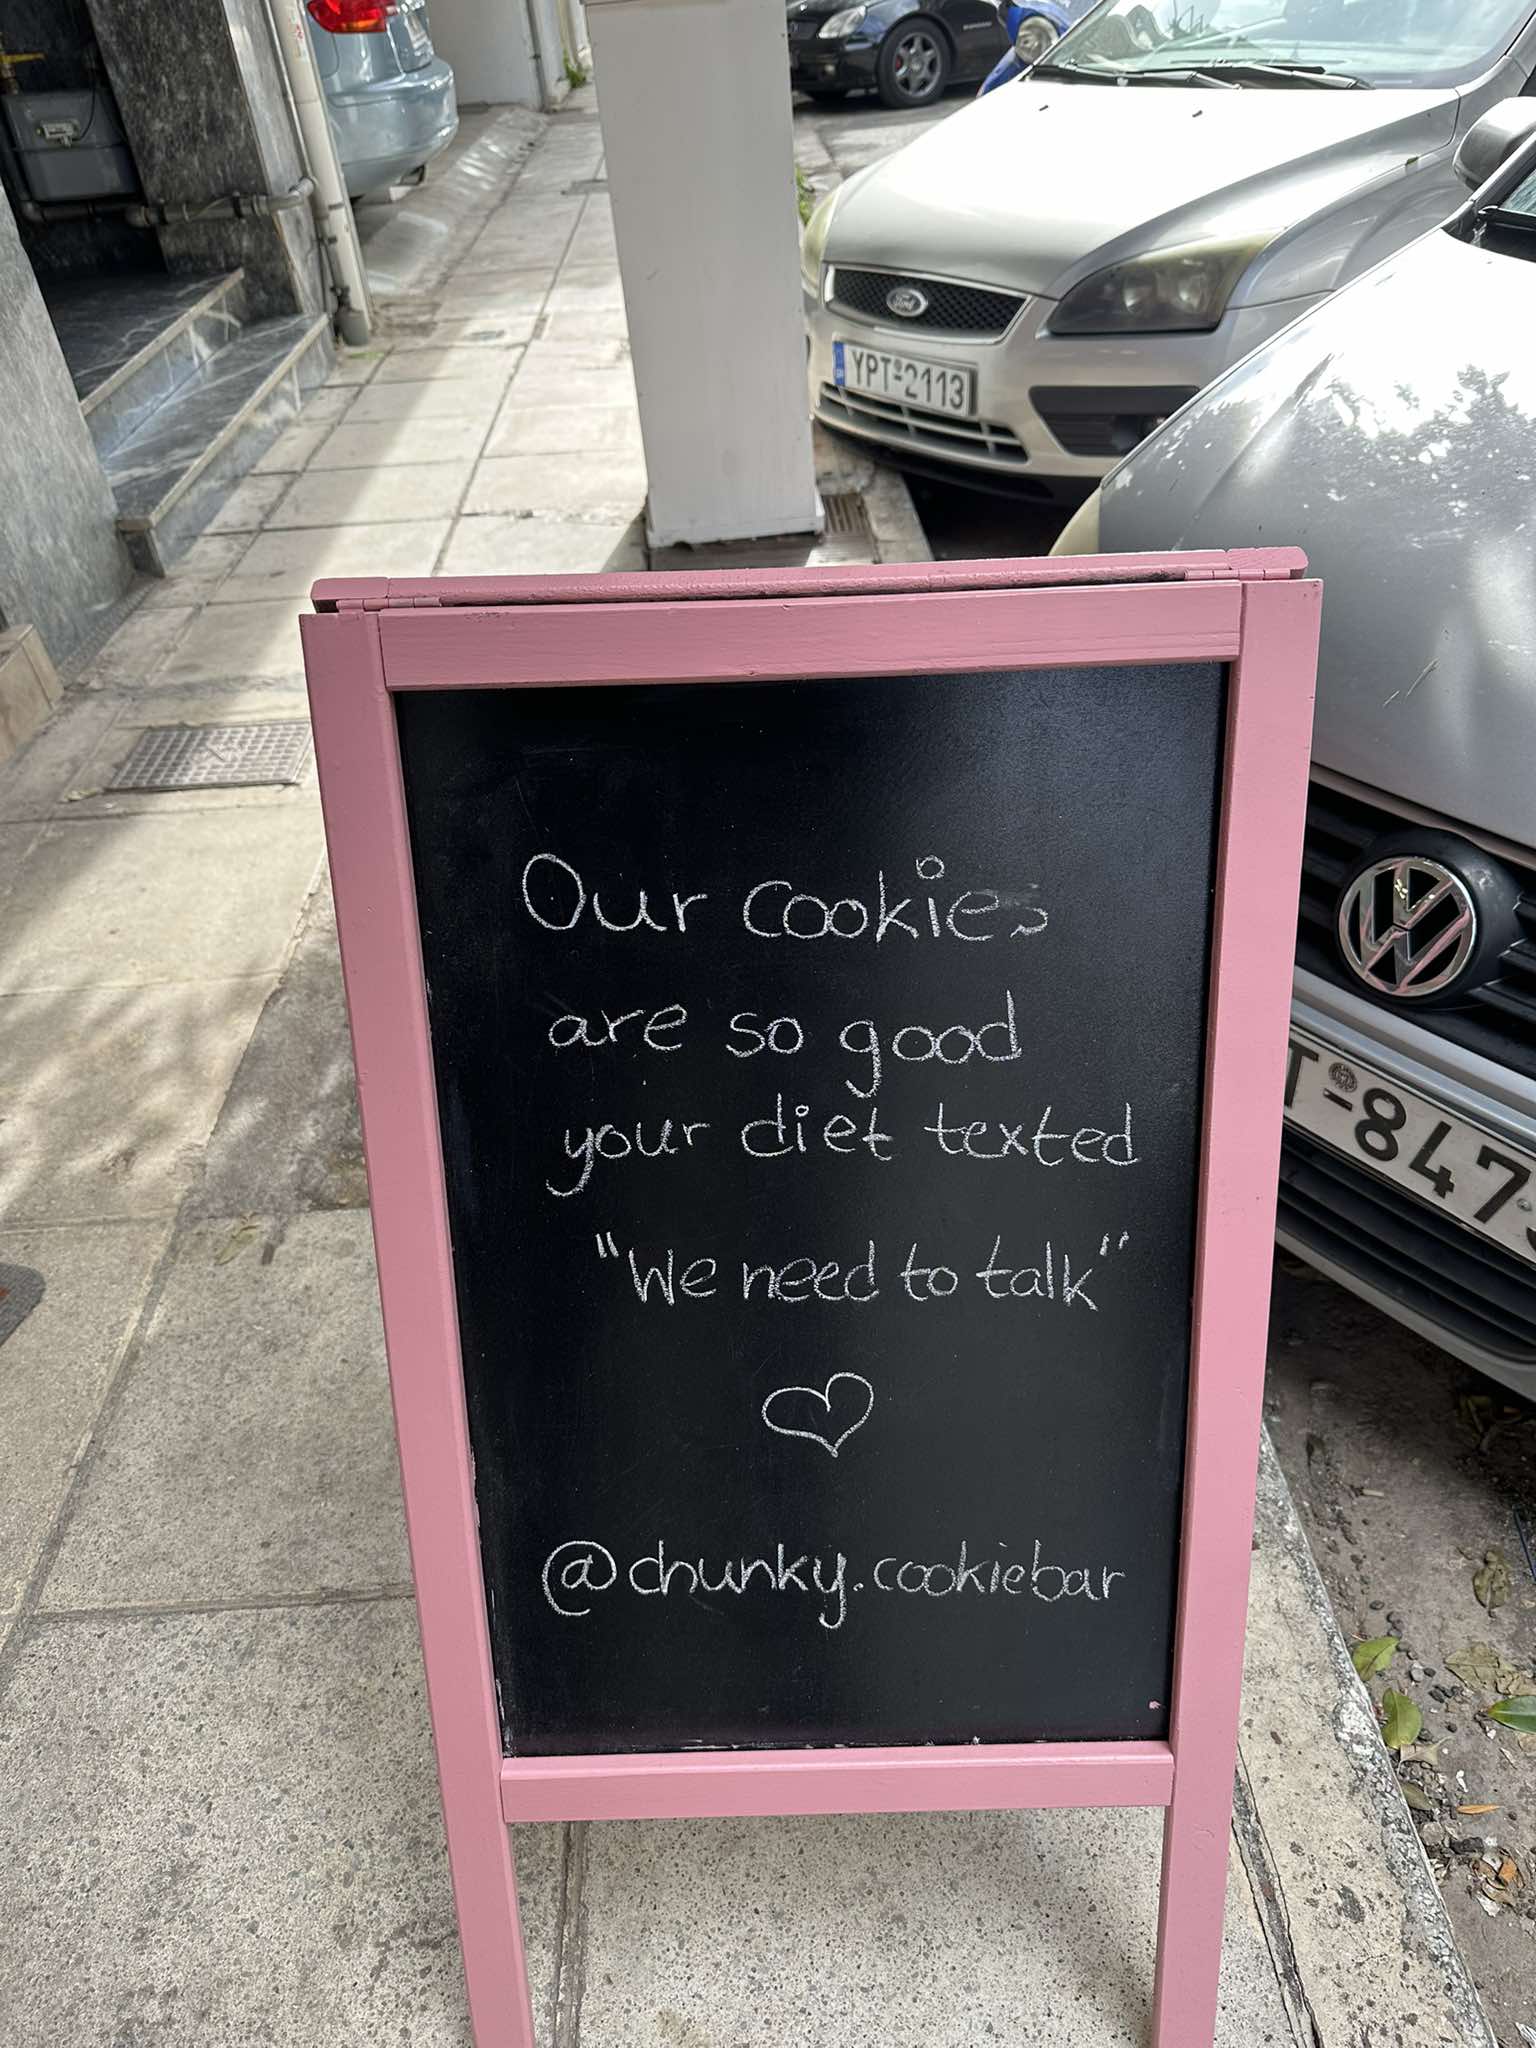 Our cookies
are so good
your diet texted
"We need to talk"
@chunky.cookiebar
Ford
YPT-2113
T-847